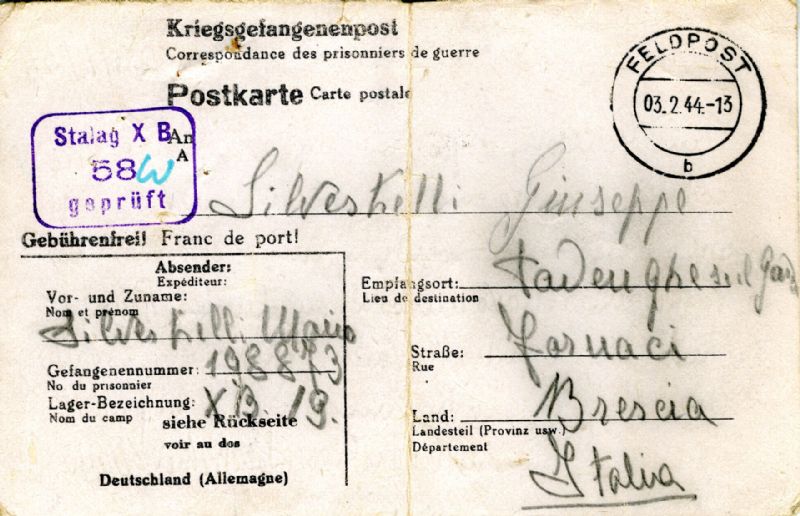 Kriegsgefangenenpost
Correspondance des prisonniers de guerre
Postkarte Carte postale
FELDPOST
03.2.44.-13
b
Stalag X B
58
geprüft
An
A
Silvestrelli Giuseppe
Gebührenfrei! Franc de port!
Absender:
Expéditeur:
Vor- und Zuname:
Nom et prénom
Silvestrelli Mario
Gefangenennummer: 198873
No. du prisonnier
Lager-Bezeichnung: XB 19.
Nom du camp
siehe Rückseite
voir au dos
Deutschland (Allemagne)
Empfangsort:
Lieu de destination
Straße: Fornaci
Rue
Land: Brescia
Landesteil (Provinz usw.)
Département
Italia